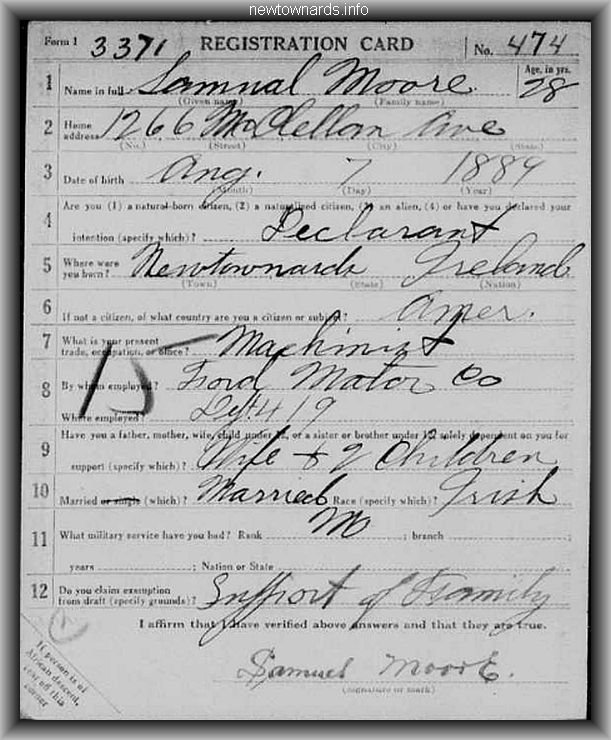 newtownards.info
Form 1 3371 REGISTRATION CARD No. 474
1 Name in full Samual Moore Age, in yrs. 28
(Given name) (Family name)
2 Home address 1266 McClellan Ave
(No.) (Street) (City) (State)
3 Date of birth Aug. 7 1889
(Month) (Day) (Year)
4 Are you (1) a natural-born citizen, (2) a naturalized citizen, (3) an alien, (4) or have you declared your
intention (specify which)? Declarant
5 Where were you born? Newtownards Ireland
(Town) (State) (Nation)
6 If not a citizen, of what country are you a citizen or subject? Amer.
7 What is your present trade, occupation, or office? Machinist
15
8 By whom employed? Ford Motor Co
Where employed? Dept 419
9 Have you a father, mother, wife, child under 12, or a sister or brother under 12, solely dependent on you for
support (specify which)? Wife + 2 Children
10 Married or single (which)? Married Race (specify which)? Irish
11 What military service have you had? Rank No ; branch ;
years ; Nation or State
12 Do you claim exemption from draft (specify grounds)? Support of Family
I affirm that I have verified above answers and that they are true.
Samuel Moore.
(Signature or mark)
If person is of
African descent,
tear off this
corner